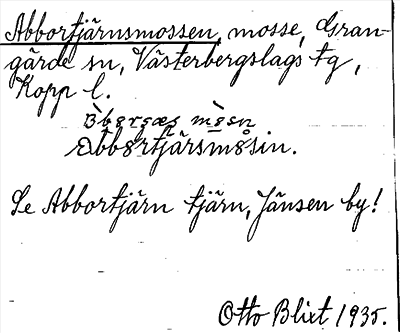 Abbortjärnsmossen, mosse, Gran-
gärde sn, Västerbergslags tg,
Kopp l.
Abbortjärsmosin.
Se Abbortjärn tjärn, Jänsen by!
Otto Blixt 1935.